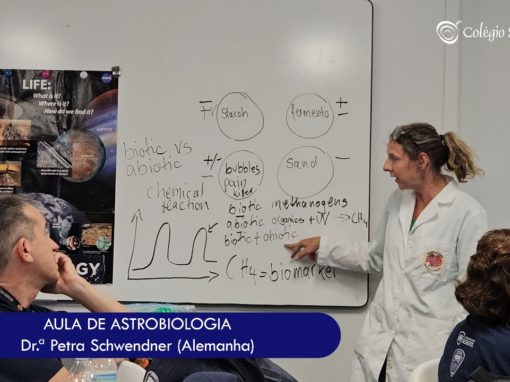 Colégio S
LIFE:
What is it?
Where is it?
How do we find it?
GY
+/- Starch
fermento ±
biotic vs
abiotic
+/- bubbles
pain
killer
Sand -
chemical
reaction
biotic methanogens
abiotic organics + UV → CH4
biotic + abiotic
CH4 = biomarker
AULA DE ASTROBIOLOGIA
Dr.ª Petra Schwendner (Alemanha)